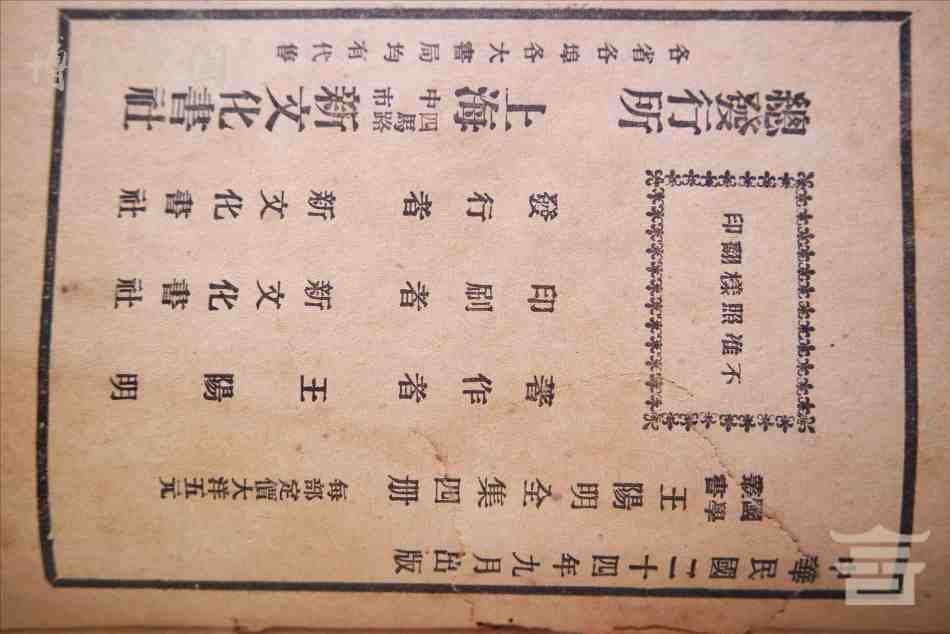 不准照樣翻印
中華民國二十四年九月出版
國學叢書 王陽明全集四册 每部定價大洋五元
著作者 王陽明
印刷者 新文化書社
發行者 新文化書社
總發行所 上海四馬路中市新文化書社
各省各埠各大書局均有代售